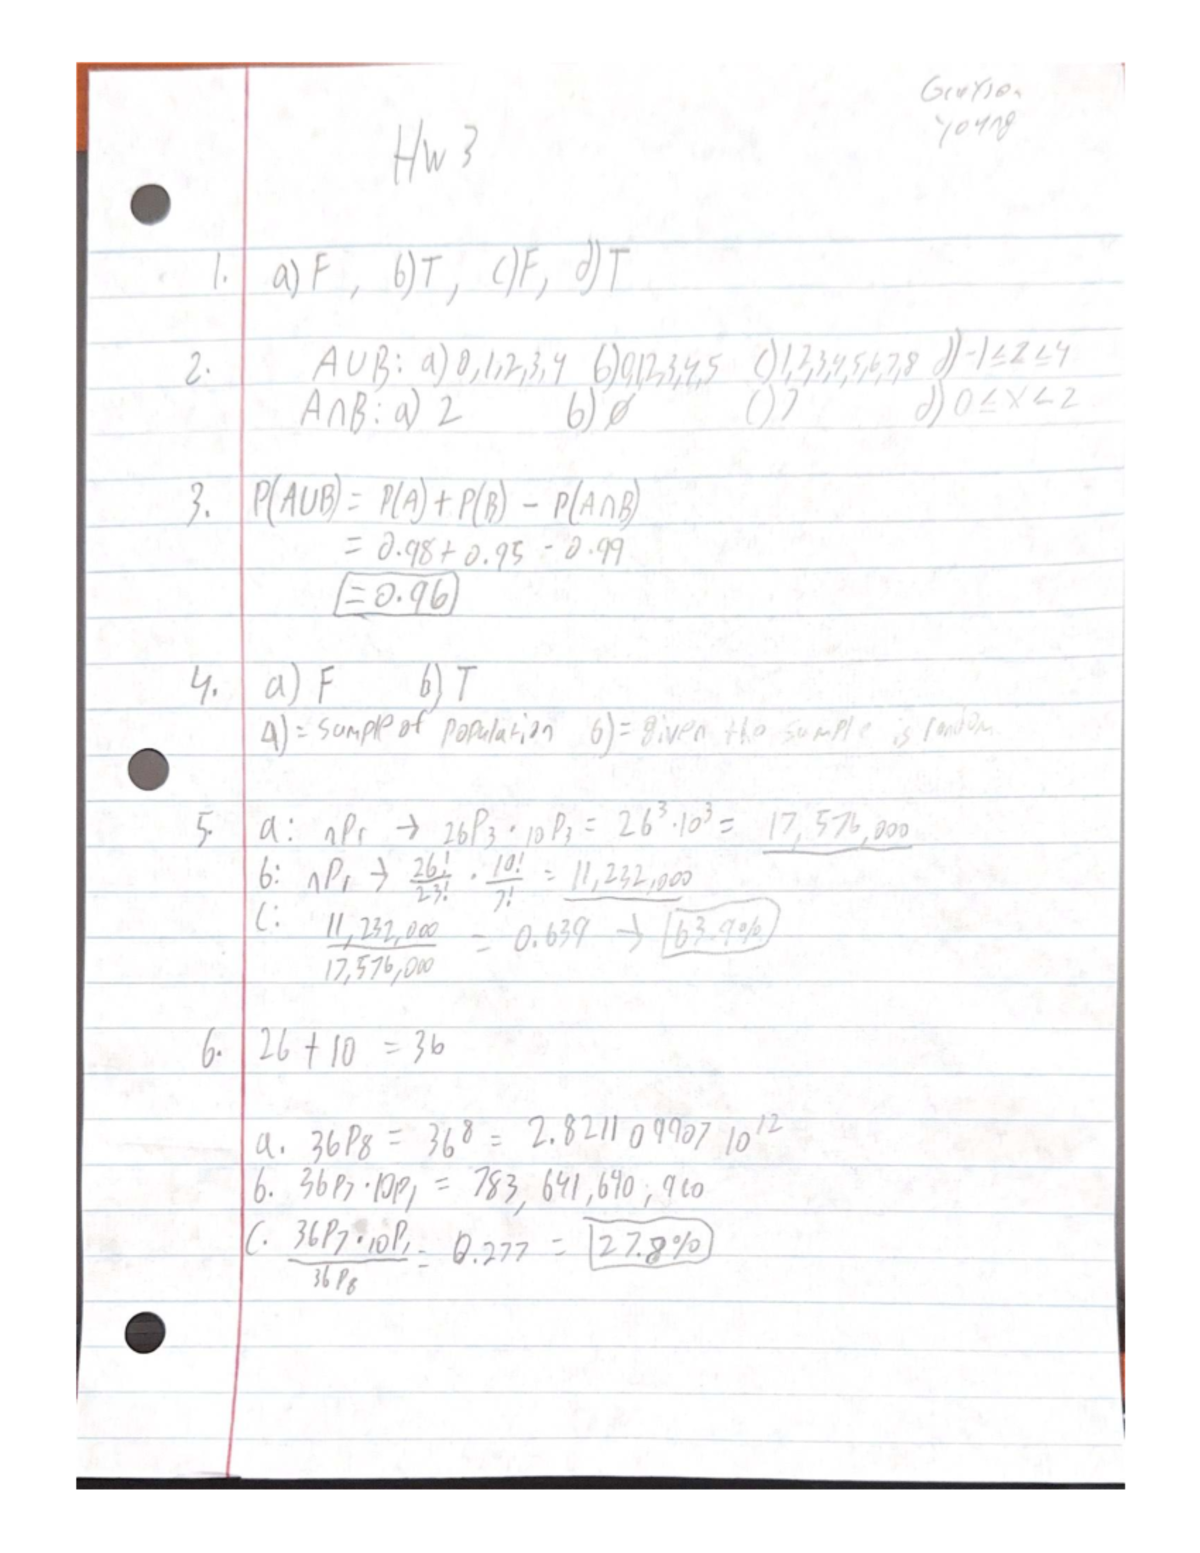 Grayson
Young
HW 3
1. a) F, b) T, c) F, d) T
2. A∪B: a) 0,1,2,3,4 b) 0,1,2,3,4,5 c) 1,2,3,4,5,6,7,8 d) -1≤2≤4
A∩B: a) 2 b) ∅ c) 7 d) 0≤x≤2
3. P(A∪B) = P(A) + P(B) - P(A∩B)
= 0.98 + 0.95 - 0.99
= 0.96
4. a) F b) T
A) = sample of population b) = given the sample is random
5. a: nPr → 26P3 · 10P3 = 26³·10³ = 17,576,000
b: nPr → 26!/23! · 10!/7! = 11,232,000
c: 11,232,000/17,576,000 = 0.639 → 63.9%
6. 26 + 10 = 36
a. 36P8 = 36⁸ = 2.821109907 10¹²
b. 36P7 · 10P1 = 783,641,640,960
c. 36P7·10P1/36P8 = 0.277 = 27.8%